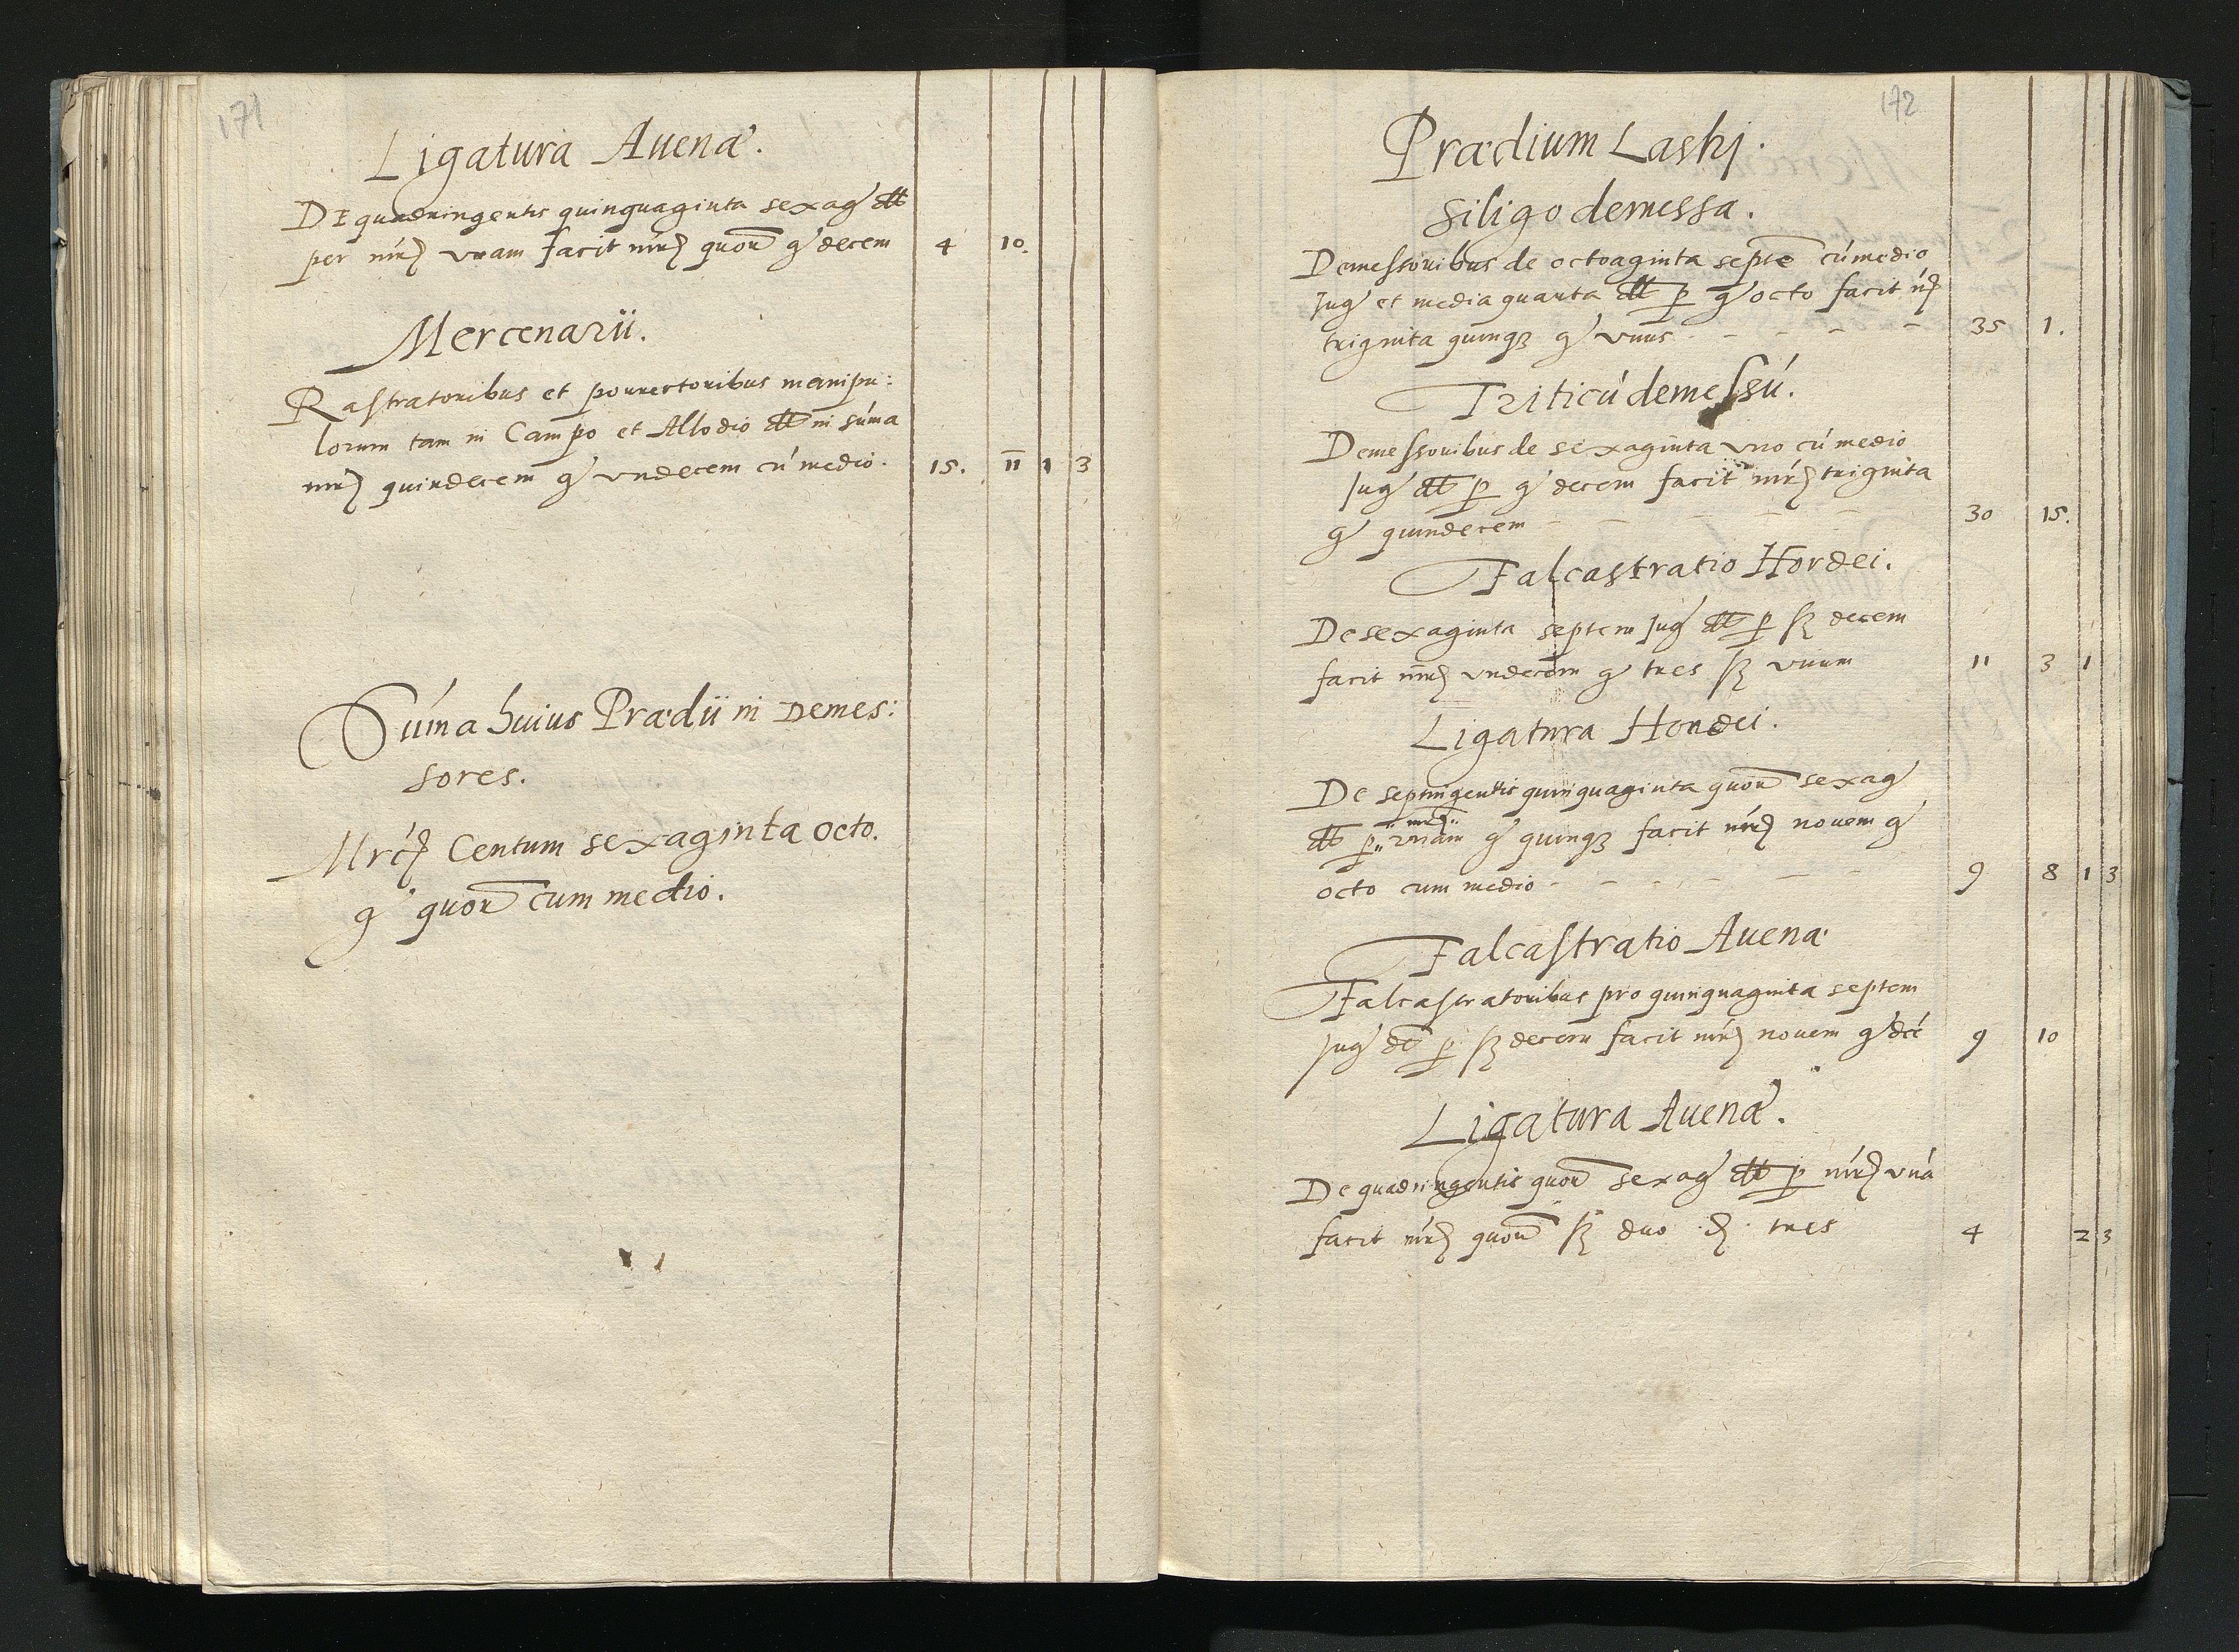 171
Ligatura Auenæ.
DE quadringentis quinquaginta sexag dtt
per mrc̃ vnam facit mrc̃ quor̃ g decem 4 10.
Mercenarii.
Rastratoribus et porrectoribus manipu:
lorum tam in Campo et Allodio dtt in súma
mrc̃ quindecem g vndecem cú medio. 15. 11 1 3
Súma huius Prædii in Demes:
sores.
Mrc̃ Centum sexaginta octo.
g quor̃ cum medio.
172
Prædium Laski.
Siligo demessa.
Demessoribus de octoaginta septē cú medio
Jug et media quarta dtt p g octo facit mrc̃
triginta quinqȝ g vnus - - - - 35 1.
Triticú demessú.
Demessoribus de sexaginta vno cú medio
Jug dtt p g decem facit mrc̃ triginta
g quindecem - - - - - 30 15.
Falcastratio Hordei.
De sexaginta septem Jug dtt p sȝ decem
facit mrc̃ vndecem g tres sȝ vnum 11 3 1
Ligatura Hordei.
De septingentis quinquaginta quor̃ sexag
mrc̃
dtt p vnam g quinqȝ facit mrc̃ nouem g
octo cum medio - - - - - - 9 8 1 3
Falcastratio Auenæ
Falcastratoribus pro quinquaginta septem
Jug dt p sȝ decem facit mrc̃ nouem g decē 9 10
Ligatura Auenæ.
De quadringentis quor̃ sexag dtt p mrc̃ vná
facit mrc̃ quor̃ sȝ duo d tres 4 2 3